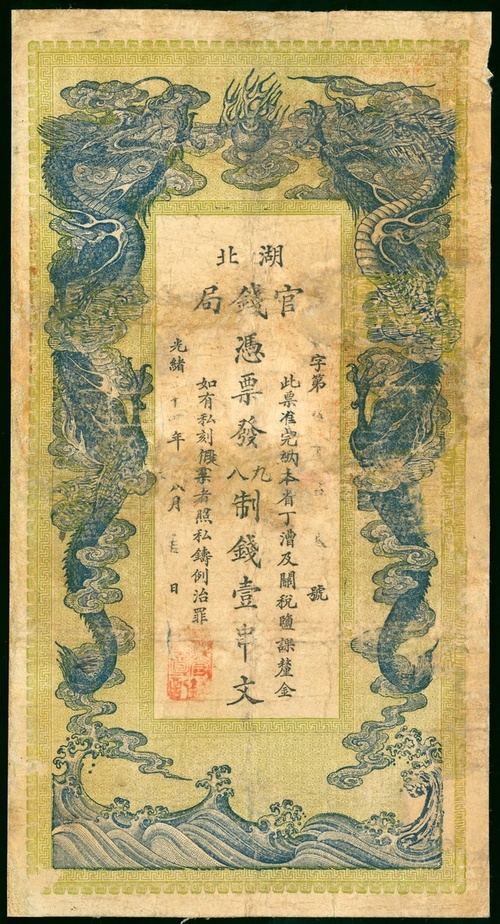 湖北
官錢局
字第 號
此票准完納本省丁漕及關稅鹽課釐金
憑票發九八制錢壹串文
如有私刻假票者照私鑄例治罪
光緒 年八月 日